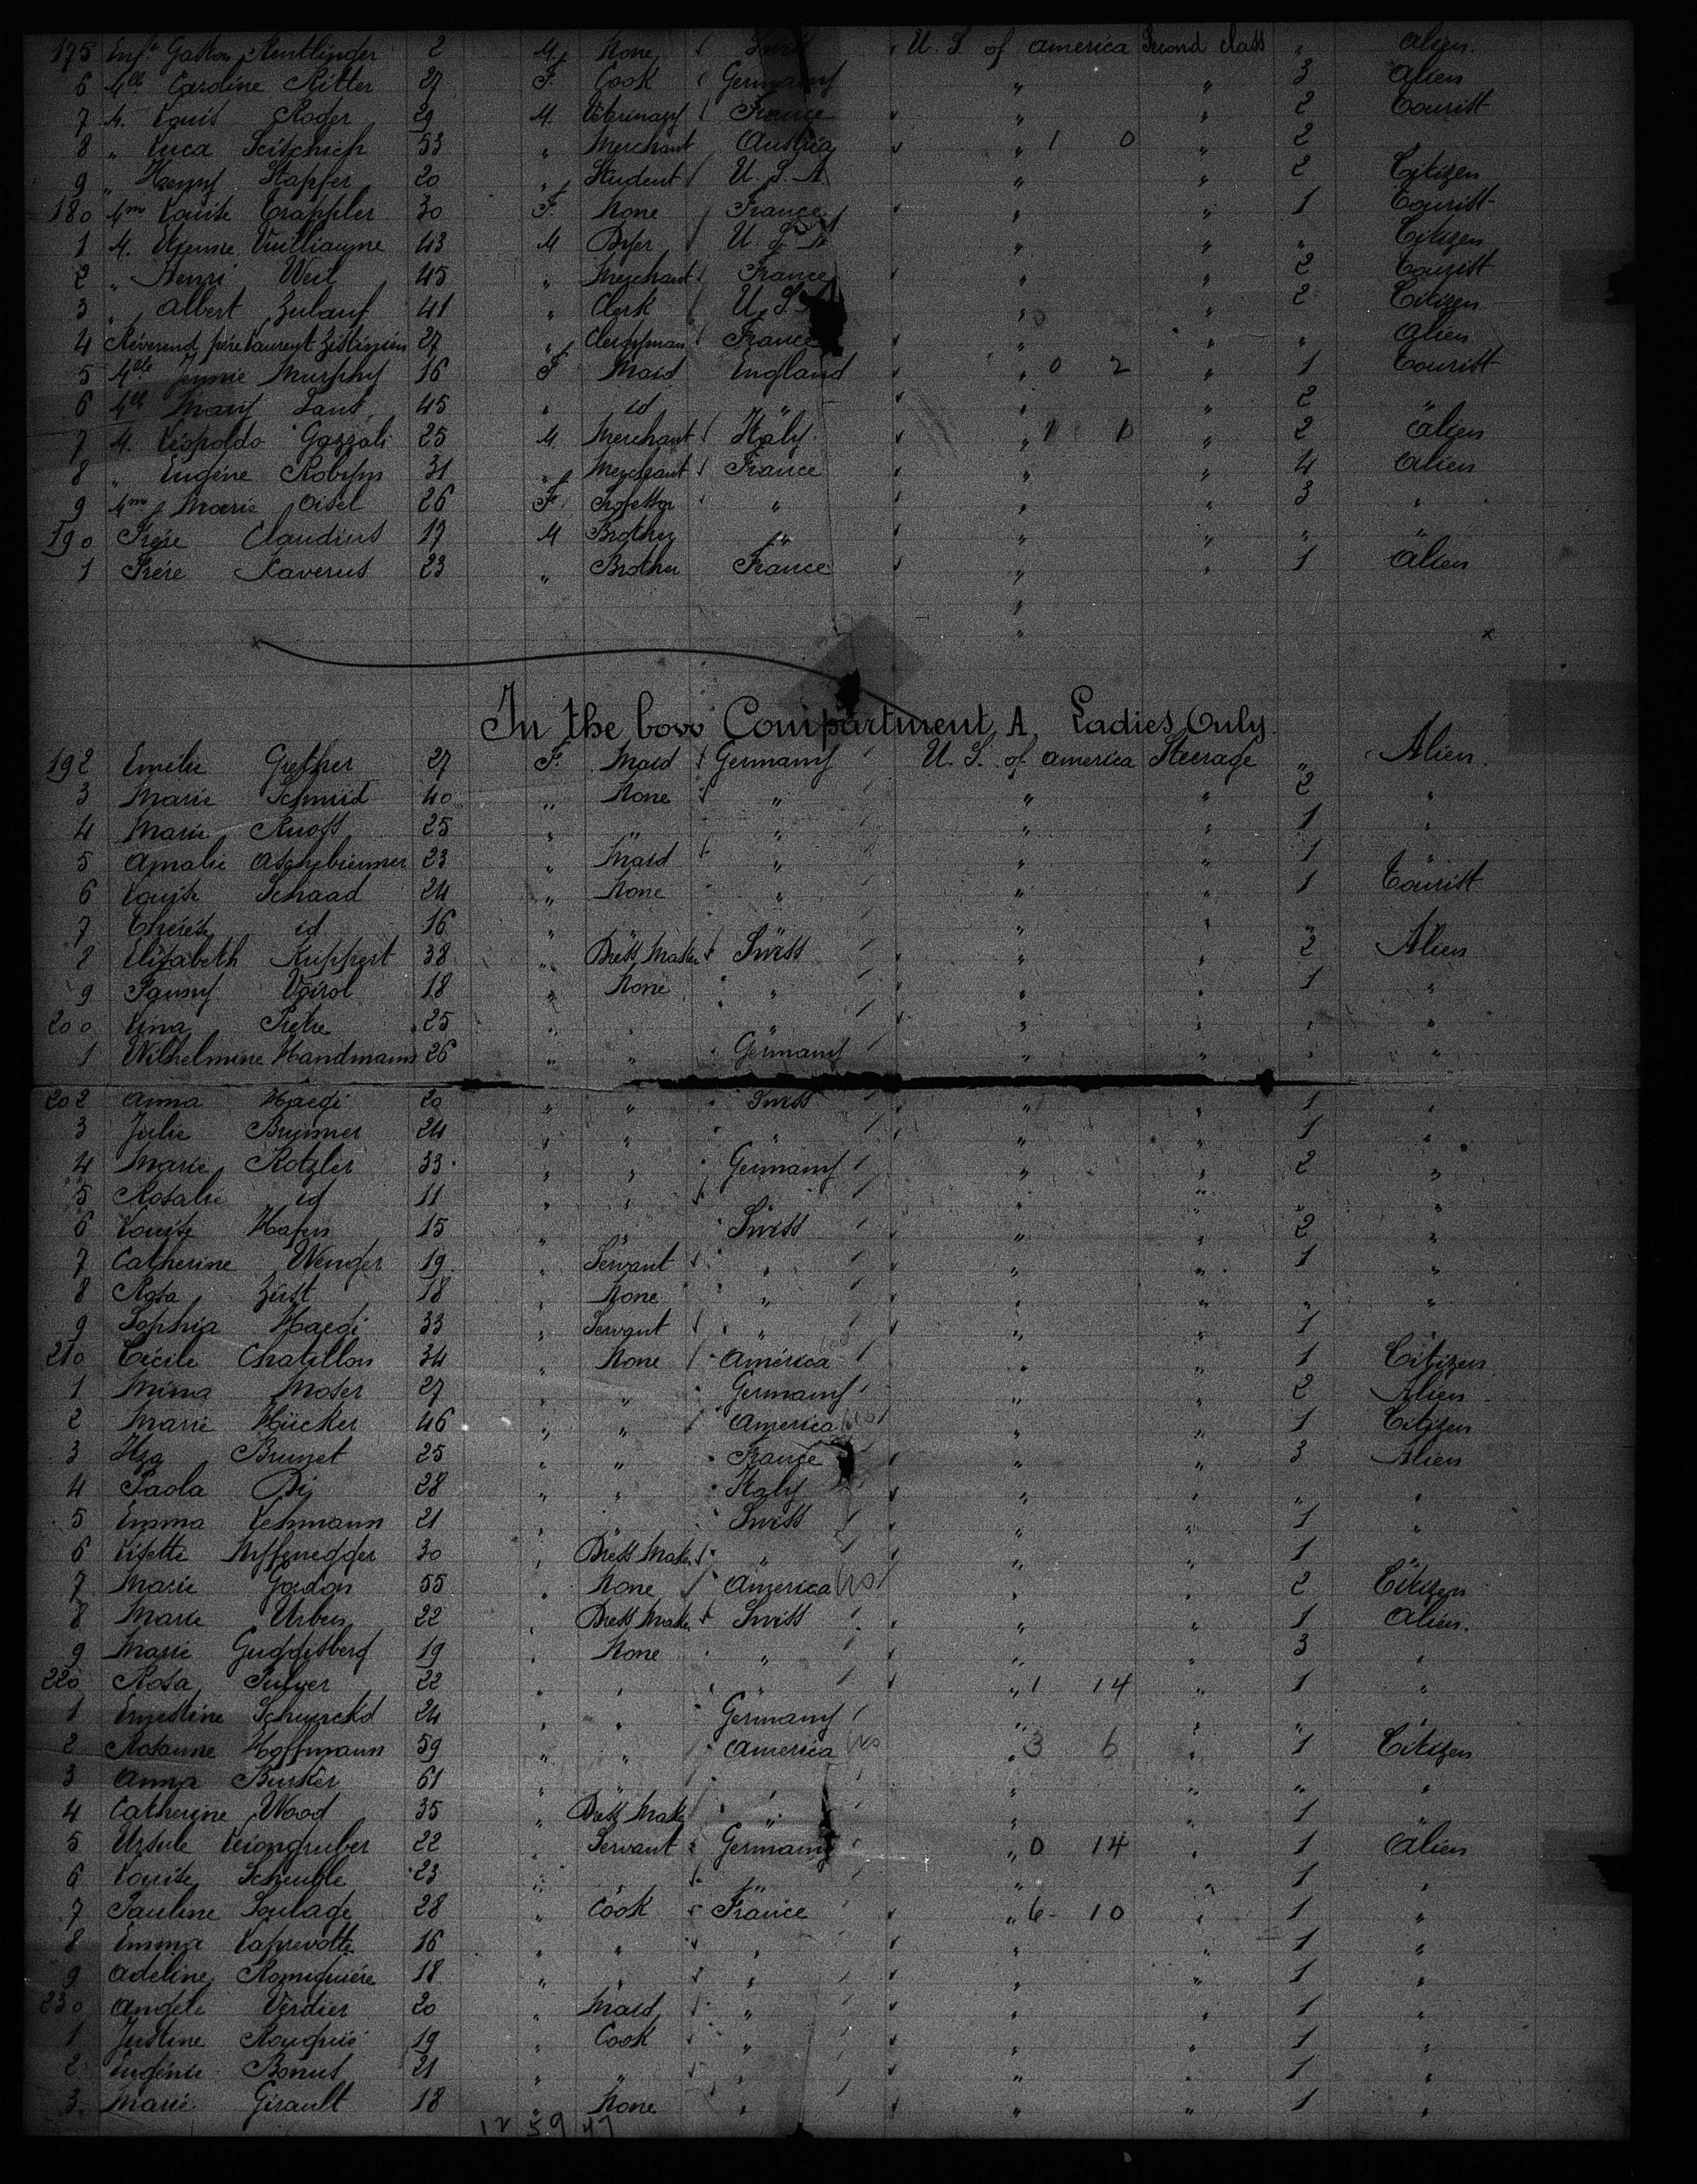 175 Enft Gaston Reutlinger 2 M. None Swiss U. S. of america Second class " alien.
6 Mlle Caroline Ritter 27 F. Cook Germany " " 3 alien
7 M. Louis Roger 29 M. Veterinary France " " 2 Tourist
8 " Luca 53 " Merchant Austria " 1 0 " 2
9 " Henry Stapfer 20 " Student U. S. A " " 2 Citizen
180 Mm Louise Trappler 30 F. None France " " 1 Tourist
1 M. Etienne Vuilliaume 43 M Dyer U. S. A " " " Citizen
2 " Henri Weil 45 " Merchant France " " 2 Tourist
3 " Albert Zulauf 41 " Clerk U. S. A " " 2 Citizen
4 Réverend père Laurent 27 " Clergyman France " " " alien
5 Mlle Jennie Murphy 16 F Maid England " 0 2 " 1 Tourist
6 Mlle Mary Lans 45 " id " " " 2 "
7 M. Léopoldo Gazzoli 25 M. Merchant Italy " 1 1 " 2 alien
8 " Eugène Robyns 31 " Merchant France " " 4 alien
9 Mm Marie Oisel 26 F. Professor " " " 3 "
190 Frère Claudius 17 M Brother " " " " "
1 Frère Xaverus 23 " Brother France " " 1 alien
"
"
In the bow Compartment A Ladies Only
192 Emélie Gether 27 F. Maid Germany U. S. of america Steerage " Alien.
3 Marie Schmid 40 " None " " " 2 "
4 Marie Knoff 25 " " " " " 1 "
5 Amalie 23 " Maid " " " 1 "
6 Louise Schaad 24 " None " " " 1 Tourist
7 Thérèse id 16 " " " "
8 Elisabeth Ruppert 38 " Dress Maker Swiss " " 2 Alien
9 Fanny Voirol 18 " None " " " 1 "
200 Lina Pietre 25 " " " " " "
1 Wilhelmine Handmann 26 " " Germany " " " "
202 Anna Haegi 20 " " Swiss " " 1 "
3 Julie Brunner 24 " " " " " 1 "
4 Marie Rotzler 33 " " Germany " " 2 "
5 Rosalie id 11 " " " " " "
6 Louise Hafen 15 " " Swiss " " 2 "
7 Catherine Wenger 19 " Servant " " " 1 "
8 Rosa Zürst 18 " None " " " " "
9 Sophia Haegi 33 " Servant " " " 1 "
210 Cécile Chatillon 34 " None América " " 1 Citizen
1 Mina Moser 27 " " Germany " " 2 Alien
2 Marie Hücker 46 " " America " " 1 Citizen
3 Iza Brunet 25 " " France " " 3 Alien
4 Paola Bi 28 " " Italy " " " "
5 Emma Lehmann 21 " " Swiss " " 1 "
6 Lisette Aeffenegger 30 " Dress Maker " " " 1 "
7 Marie Gordon 55 " None America No " " 2 Citizen
8 Marie Urben 22 " Dress Maker Swiss " " 1 Alien.
9 Marie Guggisberg 19 " None " " " 3 "
220 Rosa Pulver 22 " " " " 1 14 " 1 "
1 Ernestine 24 " " Germany " " " "
2 Rosanne Hoffmann 59 " " America No " 3 6 " 1 Citizen
3 Anna Burker 61 " " " " " " "
4 Catherine Wood 35 " Dress Maker " " " 1 "
5 Ursule Leiongruber 22 " Servant Germany " 0 14 " 1 Alien
6 Louise Scheuble 23 " " " " " 1 "
7 Pauline Soulage 28 " Cook France " 6 10 " 1 "
8 Emma Laprevotte 16 " " " " " 1 "
9 Adeline Romiguière 18 " " " " " 1 "
230 Angèle Verdier 20 " Maid " " " 1 "
1 Justine Rouquié 19 " Cook " " " 1 "
2 Eugénie Bonut 21 " " " " " 1 "
3 Marie Girault 18 " None " " " 1 "
12 59 47